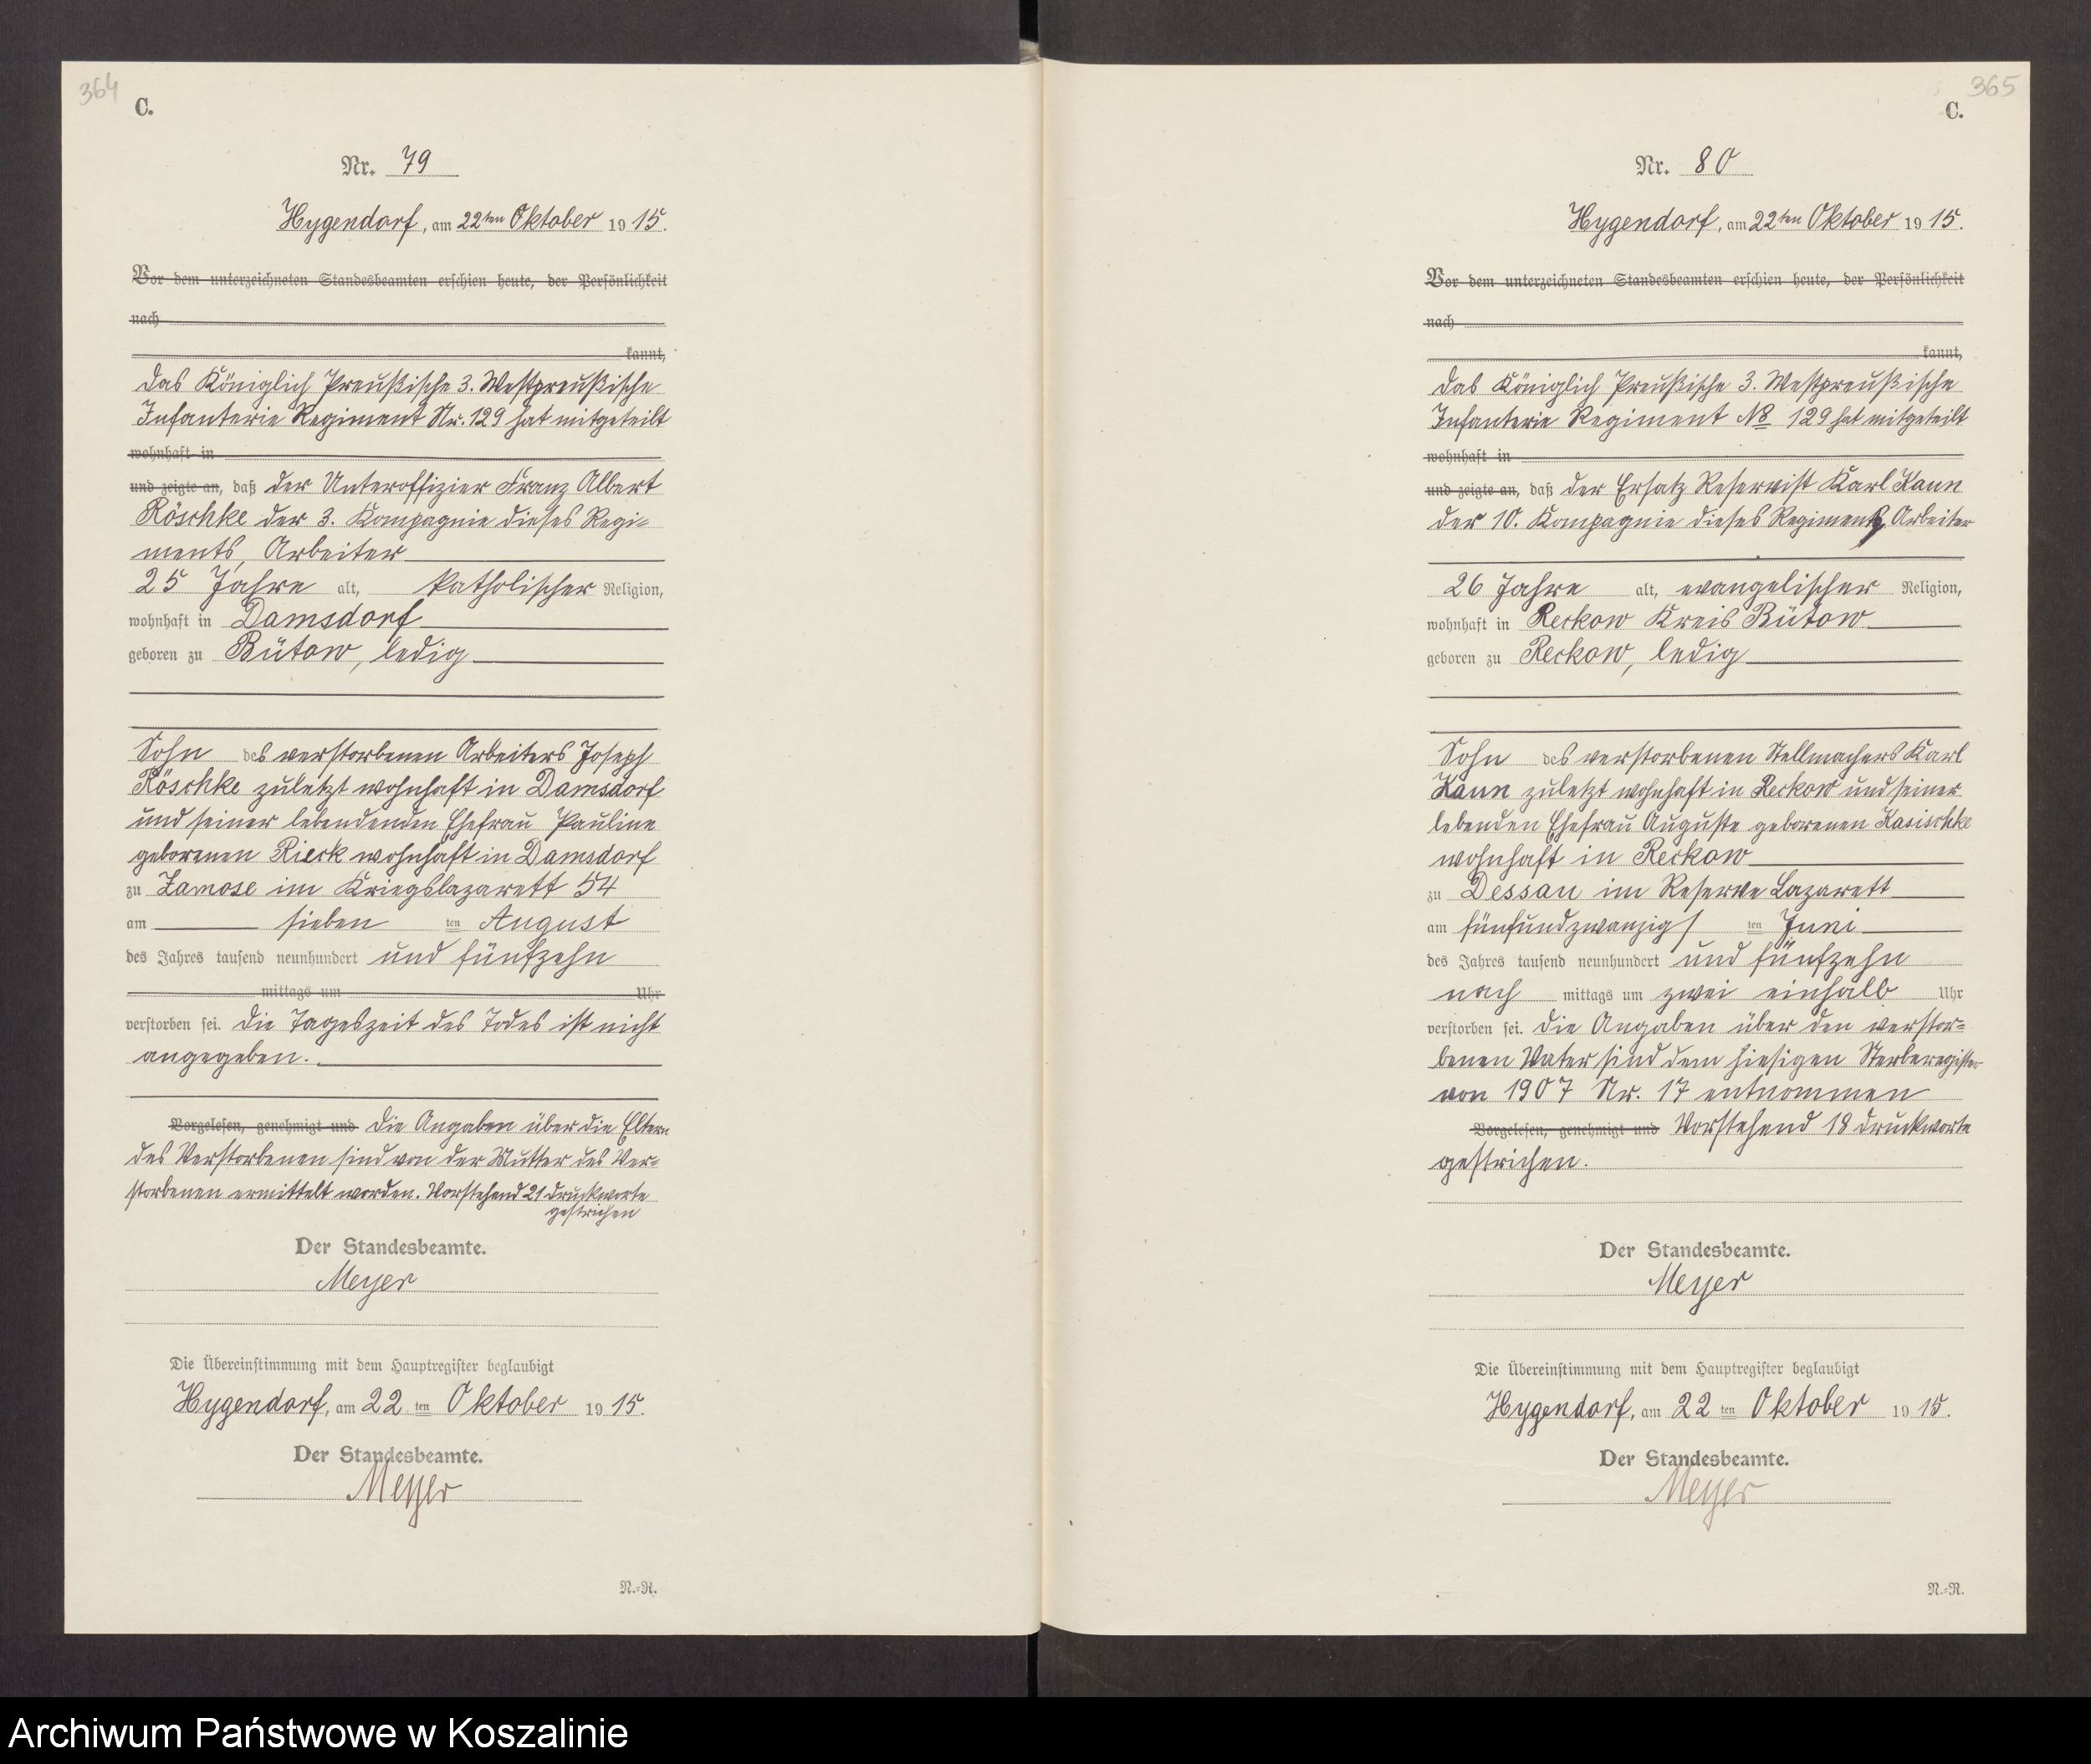 364
C.
Nr. 79
Hygendorf, am 22ten Oktober 1915.
Vor dem unterzeichneten Standesbeamten erschien heute, der Persönlichkeit
nach
kannt,
das Königlich Preußische 3. Westpreußische
Infanterie Regiment Nr. 129 hat mitgeteilt
wohnhaft in
und zeigte an, daß der Unteroffizier Franz Albert
Röschke der 3. Kompagnie dieses Regi-
ments, Arbeiter
25 Jahre alt, katholischer Religion,
wohnhaft in Damsdorf
geboren zu Bütow, ledig
Sohn des verstorbenen Arbeiters Joseph
Röschke zuletzt wohnhaft in Damsdorf
und seiner lebendenden Ehefrau Pauline
geborenen Rieck wohnhaft in Damsdorf
zu Zamose im Kriegslazarett 54
am sieben ten August
des Jahres tausend neunhundert und fünfzehn
mittags um Uhr
verstorben sei. Die Tageszeit des Todes ist nicht
angegeben.
Vorgelesen, genehmigt und Die Angaben über die Eltern
des Verstorbenen sind von der Mutter des Ver-
storbenen ermittelt worden. Vorstehend 21 Druckworte
gestrichen
Der Standesbeamte.
Meyer
Die Übereinstimmung mit dem Hauptregister beglaubigt
Hygendorf, am 22 ten Oktober 1915.
Der Standesbeamte.
Meyer
N.-R.
365
C.
Nr. 80
Hygendorf, am 22ten Oktober 1915.
Vor dem unterzeichneten Standesbeamten erschien heute, der Persönlichkeit
nach
kannt,
das Königlich Preußische 3. Westpreußische
Infanterie Regiment No 129 hat mitgeteilt
wohnhaft in
und zeigte an, daß der Ersatz Reservist Karl Kaun
der 10. Kompagnie dieses Regiments, Arbeiter
26 Jahre alt, evangelischer Religion,
wohnhaft in Reckow Kreis Bütow
geboren zu Reckow, ledig
Sohn des verstorbenen Stellmachers Karl
Kaun zuletzt wohnhaft in Reckow und seiner
lebenden Ehefrau Auguste geborenen Kasischke
wohnhaft in Reckow
zu Dessau im Reserve Lazarett
am fünfundzwanzigs ten Juni
des Jahres tausend neunhundert und fünfzehn
nach mittags um zwei einhalb Uhr
verstorben sei. Die Angaben über den verstor-
benen Vater sind dem hiesigen Sterberegister
von 1907 Nr. 17 entnommen
Vorgelesen, genehmigt und Vorstehend 18 Druckworte
gestrichen.
Der Standesbeamte.
Meyer
Die Übereinstimmung mit dem Hauptregister beglaubigt
Hygendorf, am 22 ten Oktober 1915.
Der Standesbeamte.
Meyer
N.-R.
Archiwum Państwowe w Koszalinie